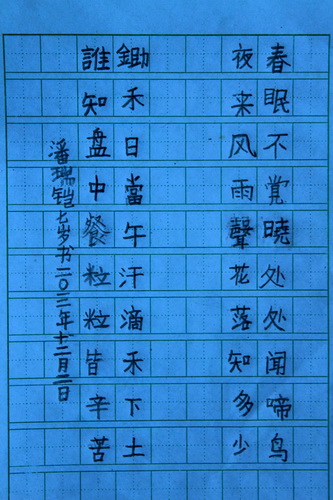 春眠不觉曉处处闻啼鸟
夜来风雨聲花落知多少
鋤禾日當午汗滴禾下土
誰知盘中餐粒粒皆辛苦
潘瑞铠七岁书二〇一二年十二月二日